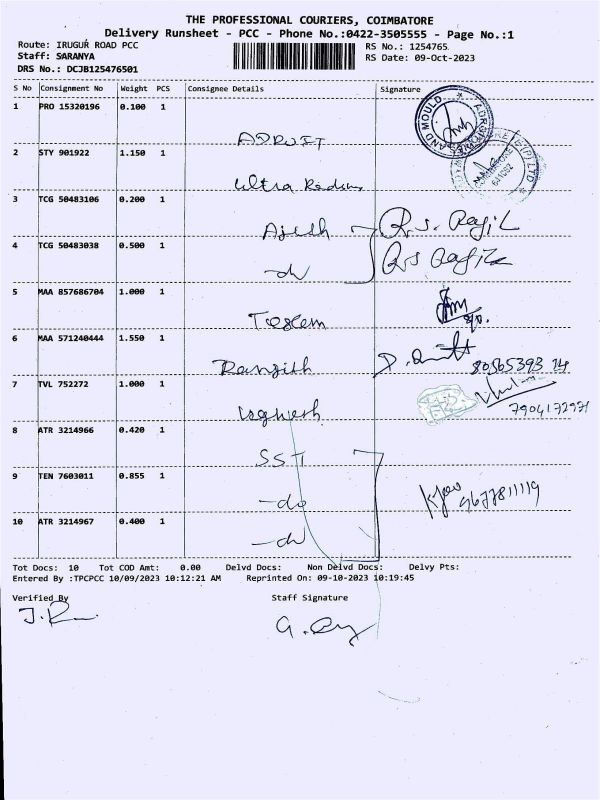 THE PROFESSIONAL COURIERS, COIMBATORE
Delivery Runsheet - PCC - Phone No.:0422-3505555 - Page No.:1
Route: IRUGUR ROAD PCC RS No.: 1254765
Staff: SARANYA RS Date: 09-Oct-2023
DRS No.: DCJB125476501
S No Consignment No Weight PCS Consignee Details Signature
1 PRO 15320196 0.100 1
AND MOULD
2 STY 901922 1.150 1
Ultra
3 TCG 50483106 0.200 1
Ajith R.S. Ragil
4 TCG 50483038 0.500 1
do RS Ragil
5 MAA 857686704 1.000 1
6 MAA 571240444 1.550 1
Ranjith 80565393 74
7 TVL 752272 1.000 1
7904172971
8 ATR 3214966 0.420 1
SST
9 TEN 7603011 0.855 1
-do 9677811119
10 ATR 3214967 0.400 1
-do
Tot Docs: 10 Tot COD Amt: 0.00 Delvd Docs: Non Delvd Docs: Delvy Pts:
Entered By :TPCPCC 10/09/2023 10:12:21 AM Reprinted On: 09-10-2023 10:19:45
Verified By Staff Signature